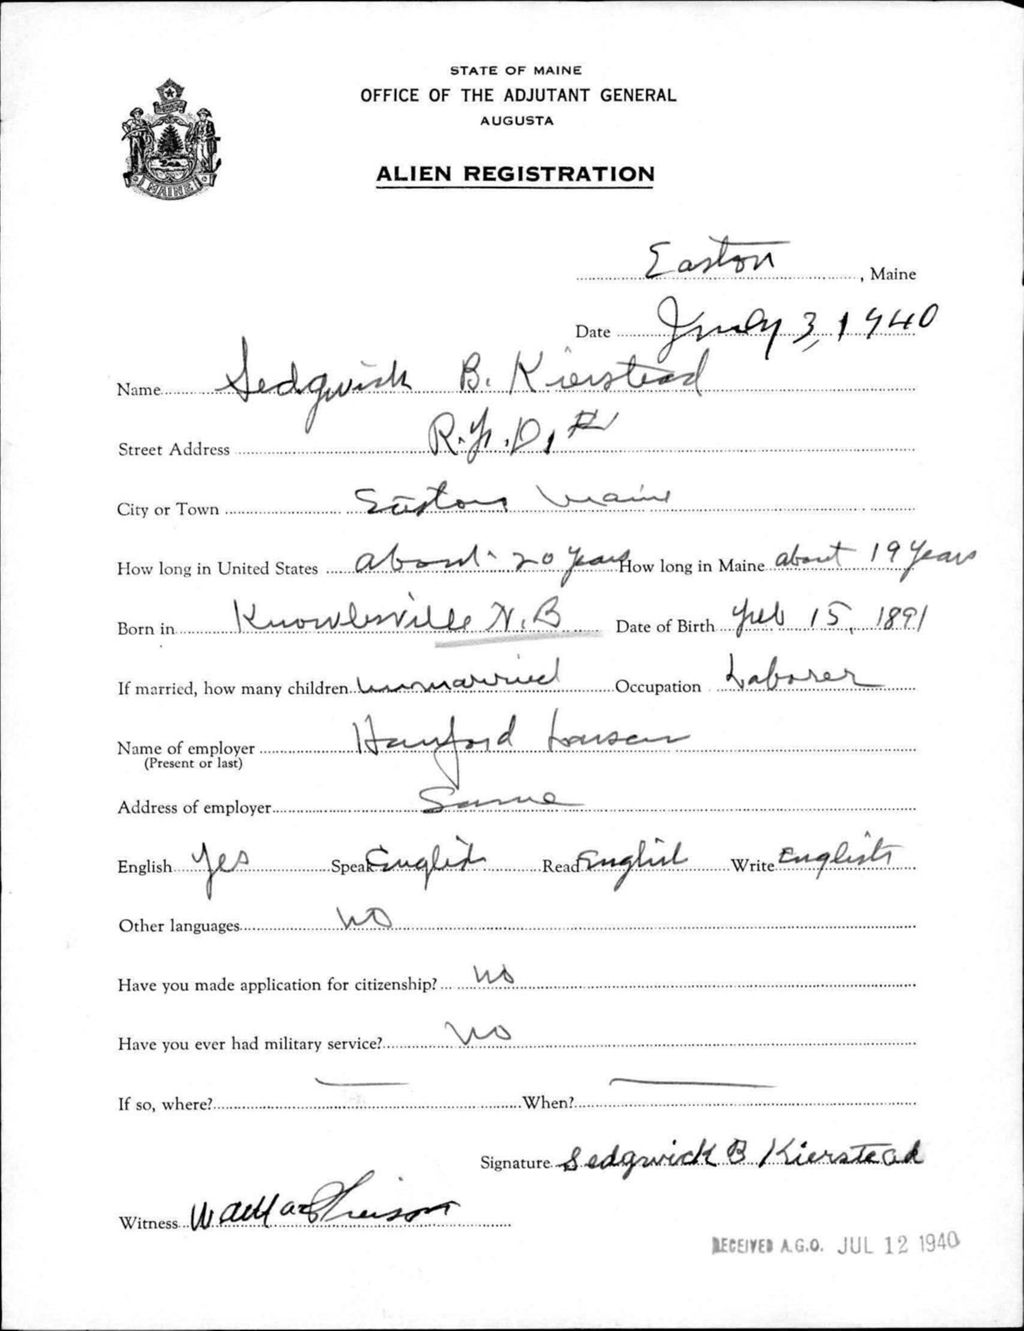 STATE OF MAINE
OFFICE OF THE ADJUTANT GENERAL
AUGUSTA
ALIEN REGISTRATION
MAINE
Easton, Maine
Date July 3, 1940
Name Sedgwick B. Kierstead
Street Address R.F.D. #
City or Town Easton Maine
How long in United States about 20 years How long in Maine about 19 years
Born in Knowlesville N.B Date of Birth Feb 15, 1891
If married, how many children unmarried Occupation Laborer
Name of employer Hanford
(Present or last)
Address of employer Same
English Yes Speak English Read English Write English
Other languages no
Have you made application for citizenship? no
Have you ever had military service? no
If so, where? — When? —
Signature Sedgwick B Kierstead
Witness
RECEIVED A.G.O. JUL 12 1940